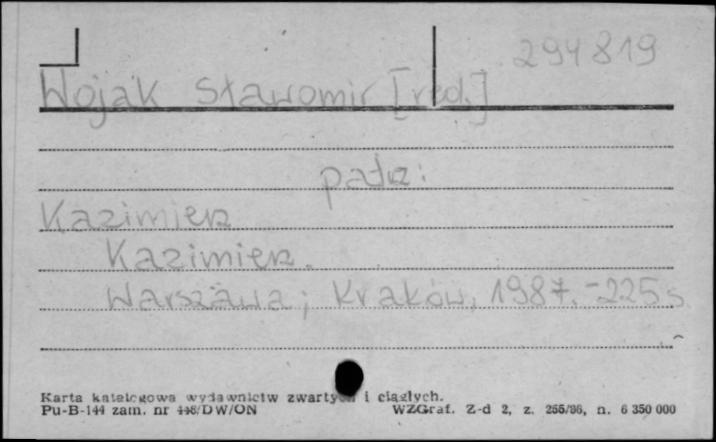 294819
Wojak Sławomir [red.]
patrz:
Kazimierz
Kazimierz.
Warszawa; Kraków, 1987. - 225 s.
Karta katalogowa wydawnictw zwartych i ciągłych.
Pu-B-144 zam. nr 448/DW/ON WZGraf. Z-d 2, z. 255/86, n. 6 350 000